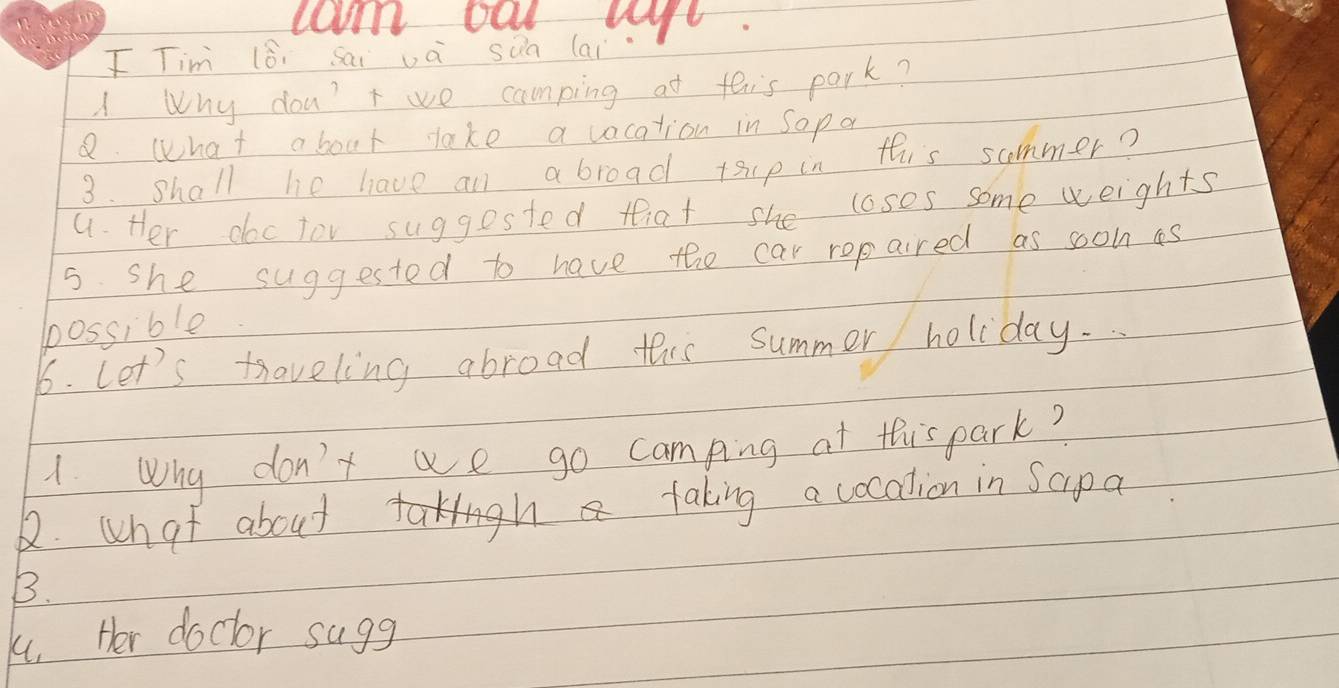 làm bài tập.
I Tìm lỗi sai và sửa lại
1 Why don't we camping at this park?
2. What about take a vacation in Sapa
3. Shall he have an abroad trip in this summer?
4. Her doctor suggested that she loses some weights
5. She suggested to have the car repaired as soon as
possible.
6. Let's traveling abroad this summer holiday...
1. Why don't we go camping at this park?
2. What about takingh a taking a vocation in Sapa.
3.
4. Her doctor sugg